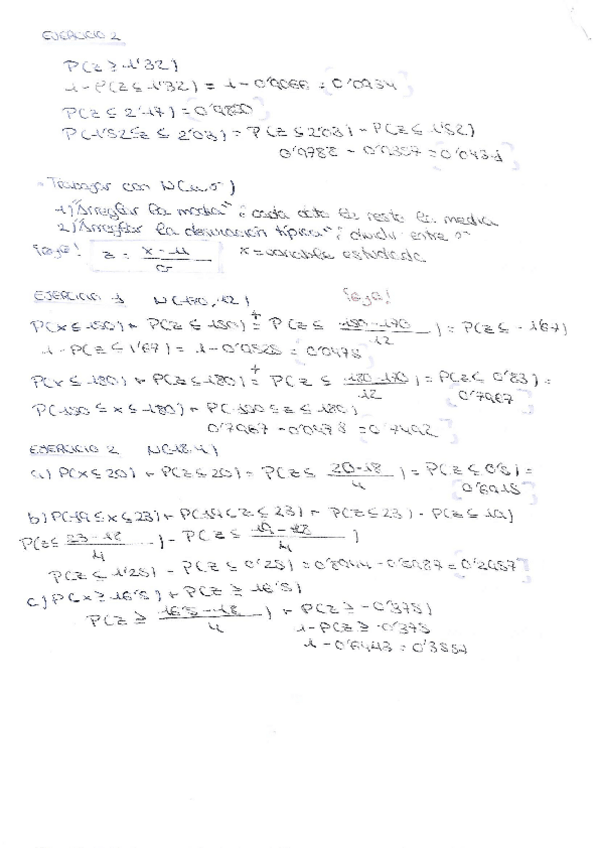 EJERCICIO 2
P(Z ≥ 1'32)
1 - P(Z ≤ 1'32) = 1 - 0'9066 = 0'0934
P(Z ≤ 2'17) = 0'9850
P(1'52 ≤ Z ≤ 2'03) = P(Z ≤ 2'03) - P(Z ≤ 1'52)
0'9788 - 0'9357 = 0'0431
- Trabajar con N(μ, σ)
1) "Arreglar la media": cada dato se resta la media
2) "Arreglar la desviación típica": dividir entre σ
¡ojo! Z = X - μ / σ X = variable estudiada
EJERCICIO 1 N(170, 12) ¡ojo!
P(X ≤ 150) = P(Z ≤ 150) = P(Z ≤ 150 - 170 / 12) = P(Z ≤ -1'67)
1 - P(Z ≤ 1'67) = 1 - 0'9525 = 0'0475
P(X ≤ 180) = P(Z ≤ 180) = P(Z ≤ 180 - 170 / 12) = P(Z ≤ 0'83) =
0'7967
P(150 ≤ X ≤ 180) = P(150 ≤ Z ≤ 180)
0'7967 - 0'0475 = 0'7492
EJERCICIO 2 N(18, 4)
a) P(X ≤ 20) = P(Z ≤ 20) = P(Z ≤ 20 - 18 / 4) = P(Z ≤ 0'5) =
0'6915
b) P(19 ≤ X ≤ 23) = P(19 ≤ Z ≤ 23) = P(Z ≤ 23) - P(Z ≤ 19)
P(Z ≤ 23 - 18 / 4) - P(Z ≤ 19 - 18 / 4)
P(Z ≤ 1'25) - P(Z ≤ 0'25) = 0'8944 - 0'5987 = 0'2957
c) P(X ≥ 16'5) = P(Z ≥ 16'5)
P(Z ≥ 16'5 - 18 / 4) = P(Z ≥ -0'375)
1 - P(Z ≥ -0'375
1 - 0'6443 = 0'3557